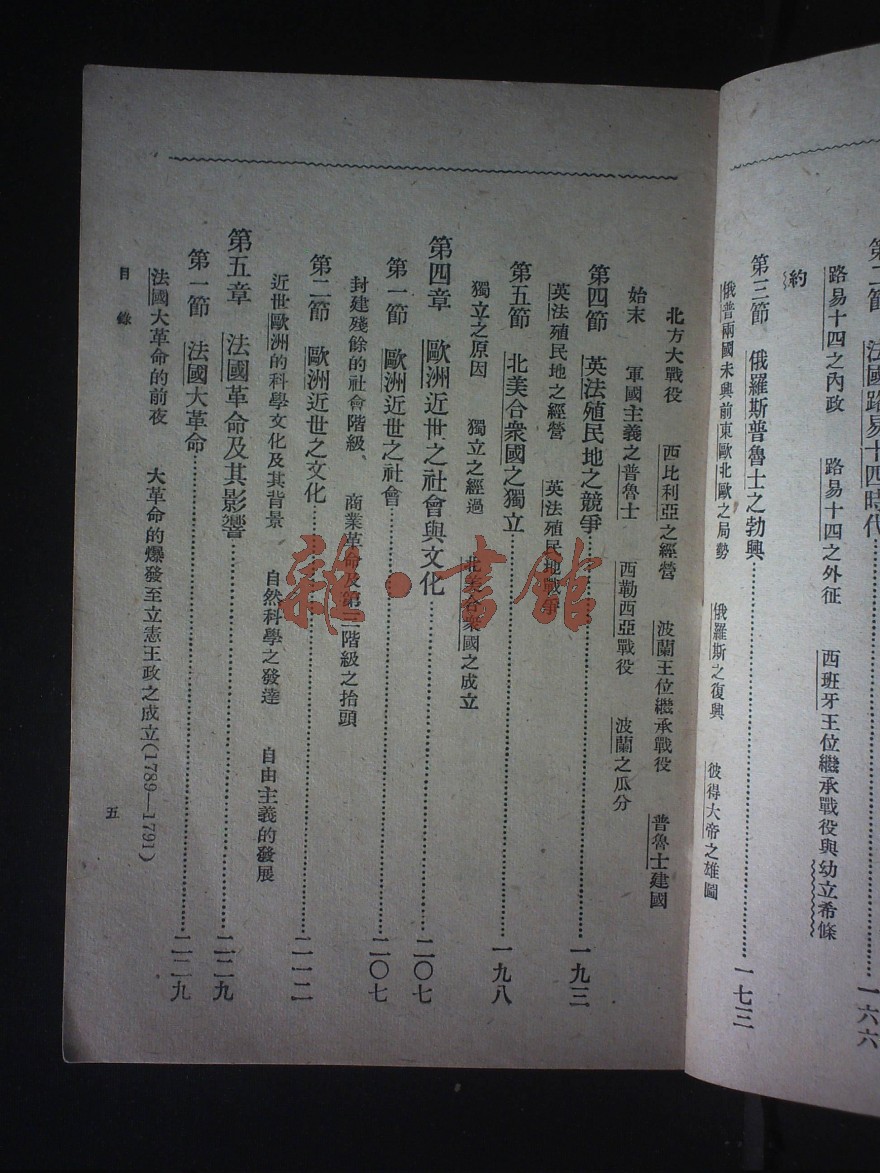 第二節 法國路易十四時代……一六六
路易十四之內政 路易十四之外征 西班牙王位繼承戰役與幼立希條
約
第三節 俄羅斯普魯士之勃興……一七三
俄普兩國未興前東歐北歐之局勢 俄羅斯之復興 彼得大帝之雄圖
北方大戰役 西比利亞之經營 波蘭王位繼承戰役 普魯士建國
始末 軍國主義之普魯士 西勒西亞戰役 波蘭之瓜分
第四節 英法殖民地之競爭……一九三
英法殖民地之經營 英法殖民地戰爭
第五節 北美合衆國之獨立……一九八
獨立之原因 獨立之經過 北美合衆國之成立
第四章 歐洲近世之社會與文化……二〇七
第一節 歐洲近世之社會……二〇七
封建殘餘的社會階級、 商業革命及第三階級之抬頭
第二節 歐洲近世之文化……二一二
近世歐洲的科學文化及其背景 自然科學之發達 自由主義的發展
第五章 法國革命及其影響……二二九
第一節 法國大革命……二二九
法國大革命的前夜 大革命的爆發至立憲王政之成立(1789—1791)
目錄 五
雜·書館